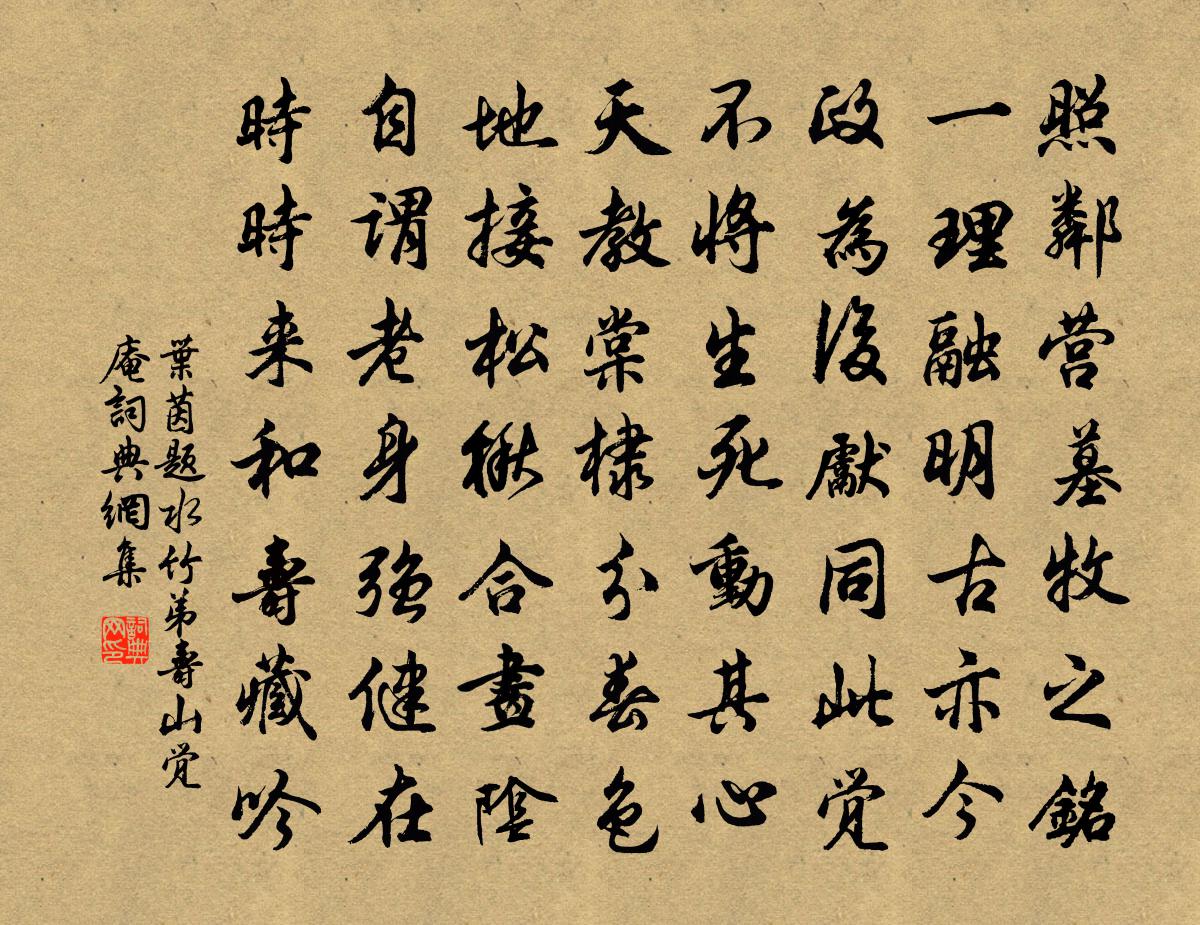 照鄰营墓牧之銘
一理融明古亦今
政為後獻同此觉
不將生死動其心
天教棠棣分春色
地接松楸合晝陰
自谓老身强健在
時時来和壽藏吟
葉茵题水竹弟壽山觉
庵詞典網集
詞典网印